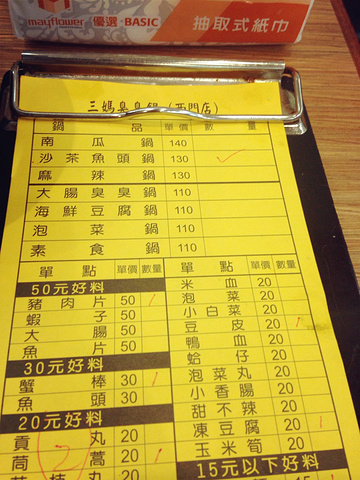 mayflower 優選·BASIC 抽取式紙巾
三媽臭臭鍋(西門店)
鍋品 單價 數量
南瓜鍋 140
沙茶魚頭鍋 130
麻辣鍋 130
大腸臭臭鍋 110
海鮮豆腐鍋 110
泡菜鍋 110
素食鍋 110
單點 單價 數量
50元好料
豬肉片 50
蝦子 50
大腸 50
魚片 50
30元好料
蟹棒 30
魚頭 30
20元好料
貢丸 20
茼蒿 20
單點 單價 數量
米血 20
泡菜 20
小白菜 20
豆皮 20
鴨血 20
蛤仔 20
泡菜丸 20
小香腸 20
甜不辣 20
凍豆腐 20
玉米筍 20
15元以下好料